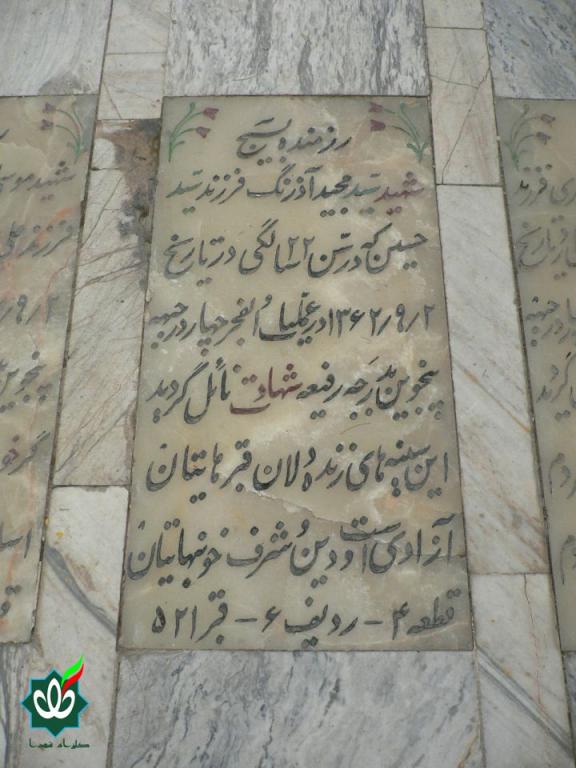 رزمنده بسیج
شهید سید مجید آذرنگ فرزند سید
حسین که در سن ۲۲ سالگی در تاریخ
۱۳۶۲/۹/۲ در عملیات والفجر چهار در جبهه
پنجوین بدرجه رفیعه شهادت نائل گردید
این سینه های زنده دلان قبرهایتان
آزادی است و دین و شرف خونبهایتان
قطعه ۴ - ردیف ۶ - قبر ۵۲۱
شهید موسی
فرزند علی
۹/۲
پنجوین